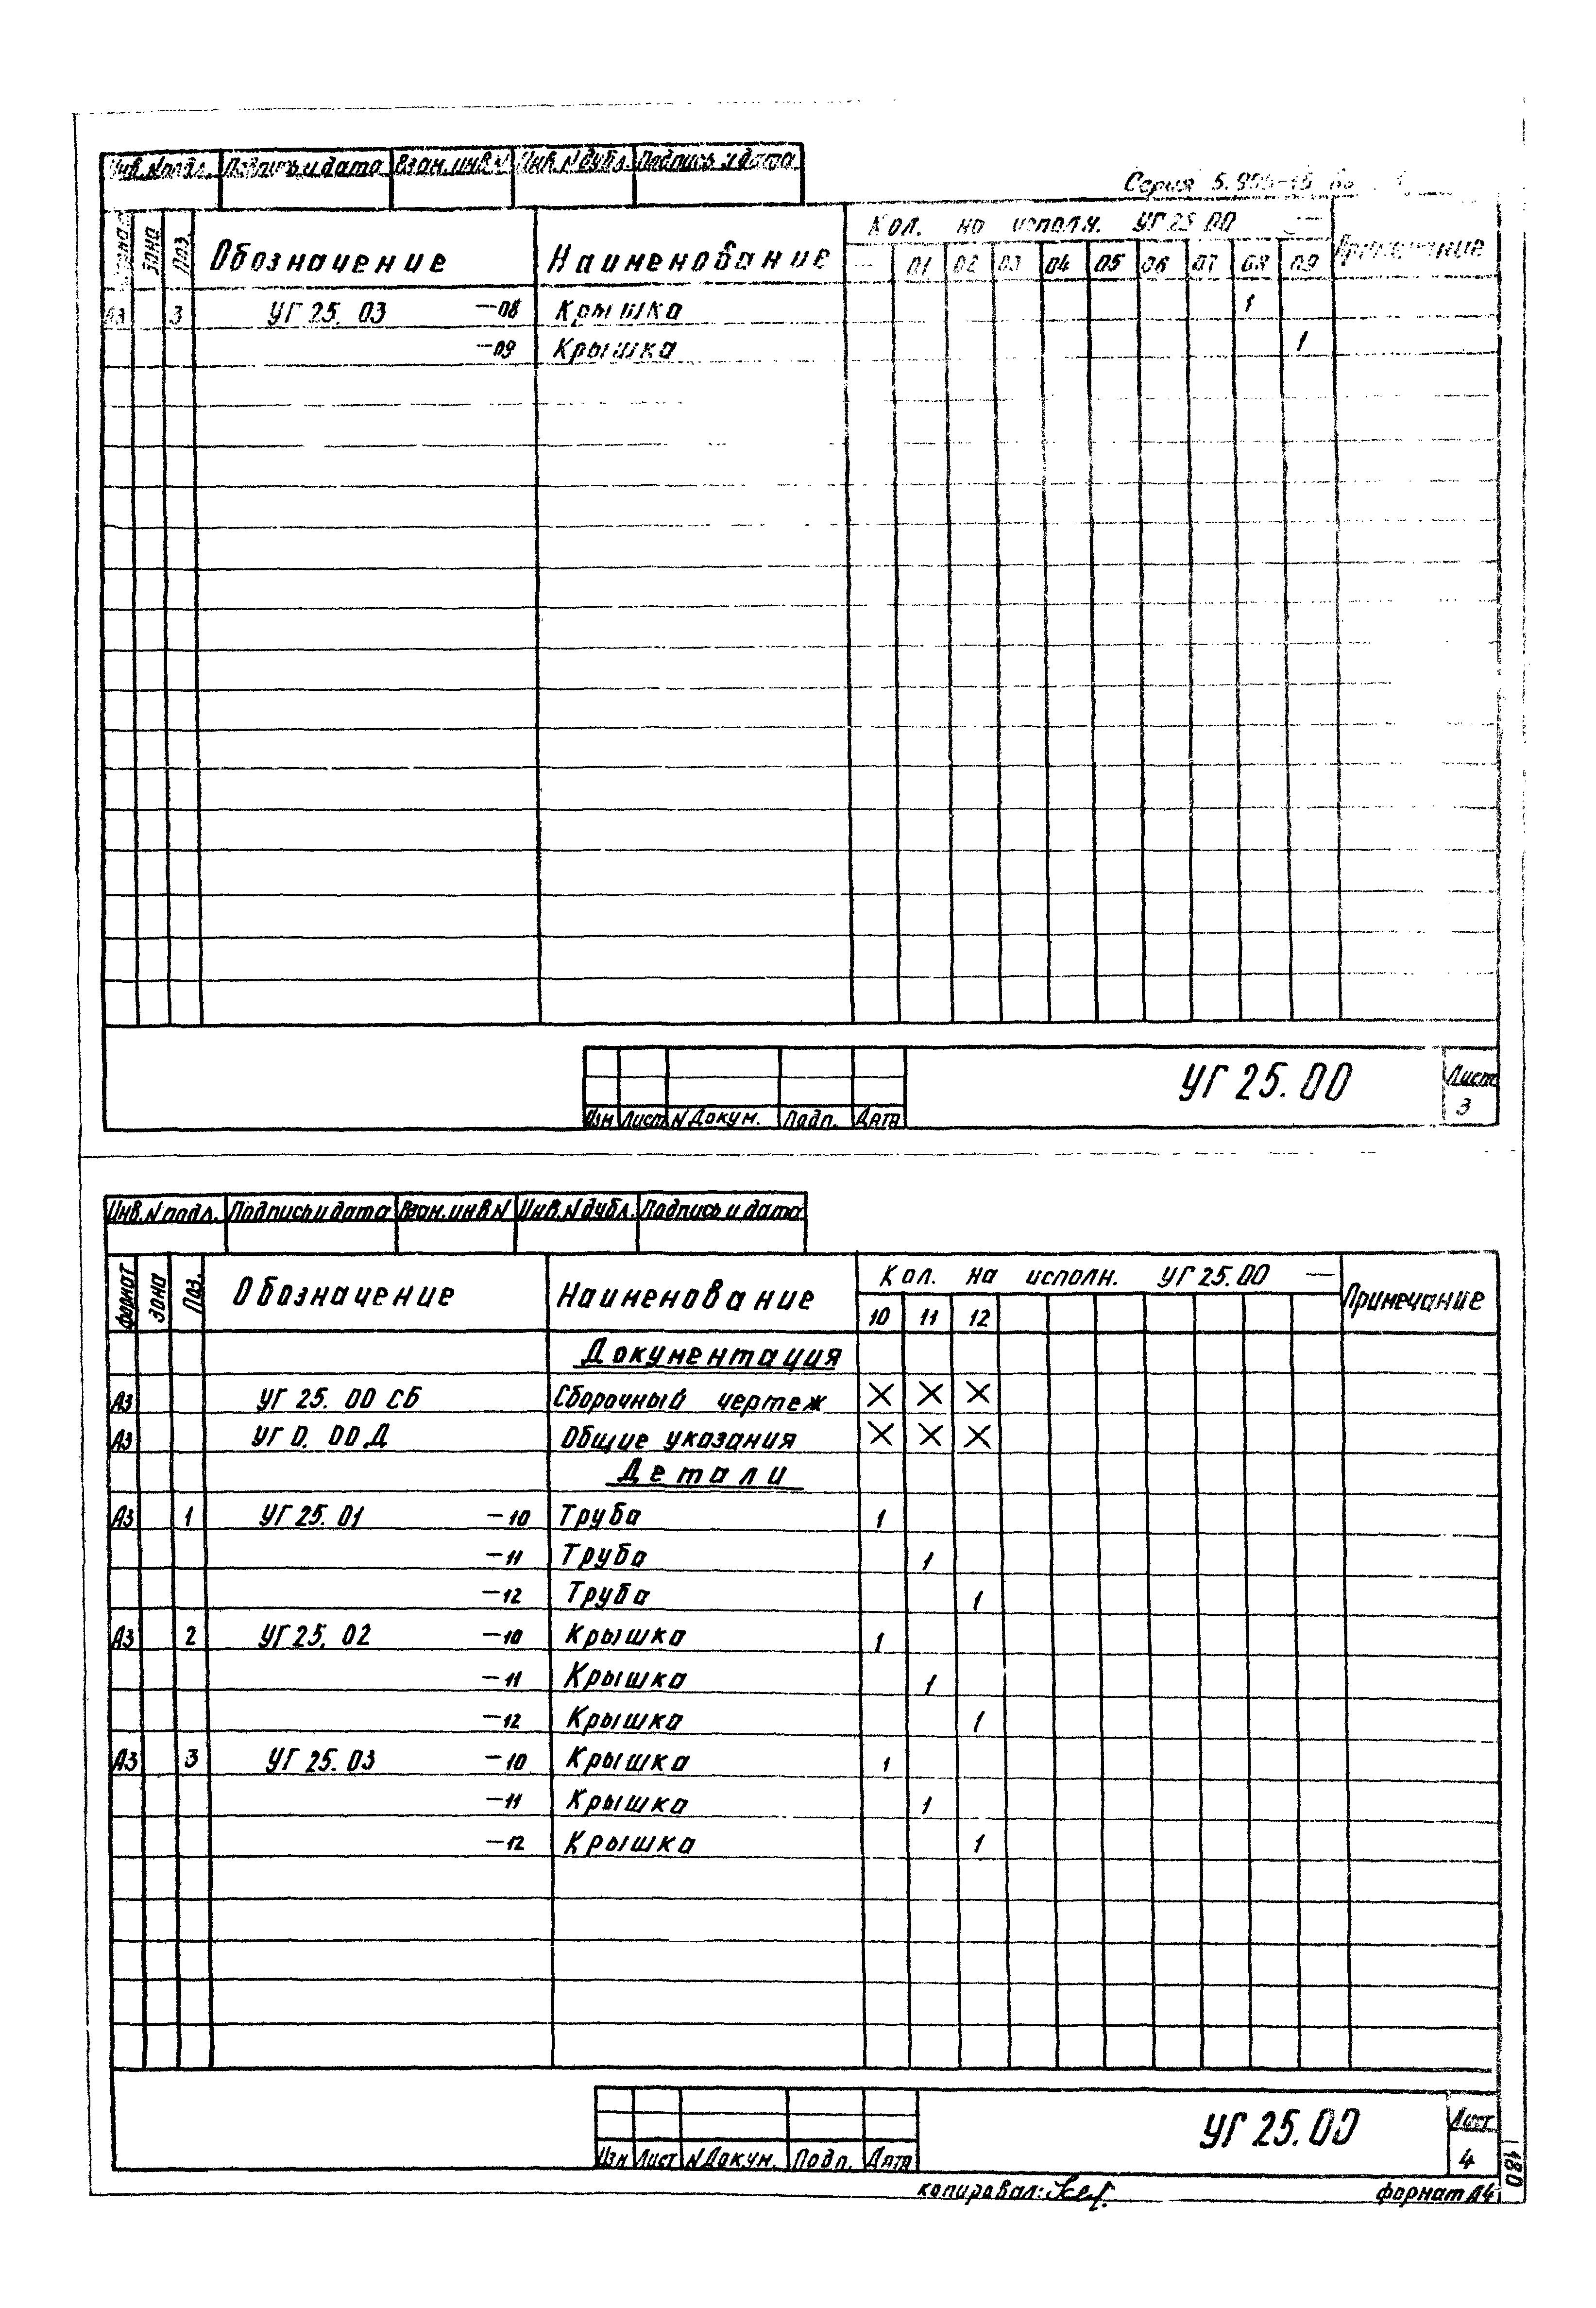 Инв.№подл. Подпись и дата Взам.инв.№ Инв.№дубл. Подпись и дата
Серия
зона Поз. Обозначение Наименование Кол. на исполн. УГ25.00 — Примечание
— 01 02 03 04 05 06 07 08 09
А3 3 УГ 25. 03 —08 Крышка 1
—09 Крышка 1
Изм Лист №Докум. Подп. Дата
УГ 25.00
Лист
3
Инв.№подл. Подпись и дата Взам.инв.№ Инв.№дубл. Подпись и дата
формат зона Поз. Обозначение Наименование Кол. на исполн. УГ25.00 — Примечание
10 11 12
Документация
А3 УГ 25. 00 СБ Сборочный чертеж X X X
А3 УГ 0. 00 Д Общие указания X X X
Детали
А3 1 УГ 25. 01 —10 Труба 1
—11 Труба 1
—12 Труба 1
А3 2 УГ 25. 02 —10 Крышка 1
—11 Крышка 1
—12 Крышка 1
А3 3 УГ 25.03 —10 Крышка 1
—11 Крышка 1
—12 Крышка 1
Изм Лист №Докум. Подп. Дата
УГ 25.00
Лист
4
180
копировал:
формат А4